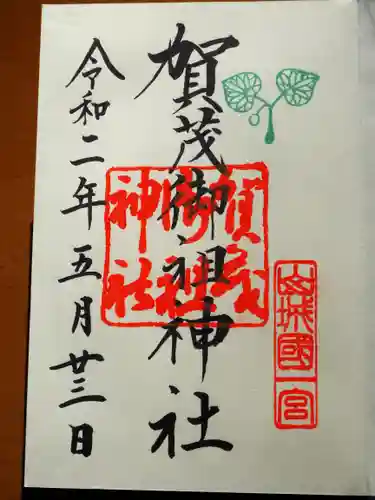 山城國一宮
賀茂御祖神社
賀茂御祖神社
令和二年五月廿三日